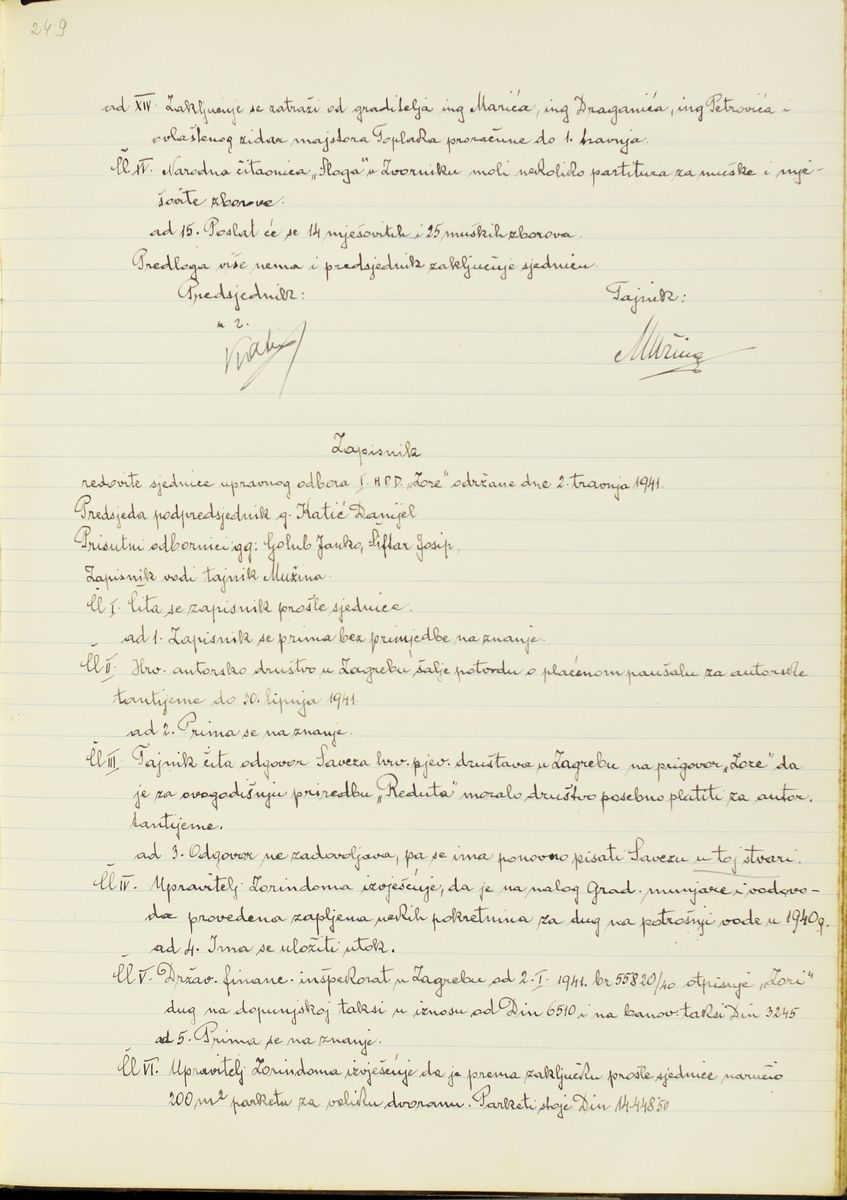 249
ad XIV. Zaključuje se zatraži od graditelja ing Marića, ing Draganića, ing Petrovića i
ovlaštenog zidar majstora Toplaka proračune do 1. travnja.
Čl XV. Narodna čitaonica „Sloga" u Zvorniku moli nekoliko partitura za muške i mje-
šovite zborove.
ad 15. Poslat će se 14 mješovitih i 25 muških zborova.
Predloga više nema i predsjednik zaključuje sjednicu.
Predsjednik:
Tajnik:
Mužina
Zapisnik
redovite sjednice upravnog odbora I. H.P.D. „Zore" održane dne 2. travnja 1941.
Predsjeda podpredsjednik g. Katić Danijel
Prisutni odbornici gg: Golub Janko, Šiftar Josip,
Zapisnik vodi tajnik Mužina.
Čl I. Čita se zapisnik prošle sjednice.
ad 1. Zapisnik se prima bez primjedbe na znanje.
Čl II. Hrv. autorsko društvo u Zagrebu šalje potvrdu o plaćenom paušalu za autorske
tantijeme do 30. lipnja 1941.
ad 2. Prima se na znanje.
Čl III. Tajnik čita odgovor Saveza hrv. pjev. društava u Zagrebu na prigovor „Zore" da
je za ovogodišnju priredbu „Reduta" moralo društvo posebno platiti za autor.
tantijeme.
ad 3. Odgovor ne zadovoljava, pa se ima ponovno pisati Savezu u toj stvari.
Čl IV. Upravitelj Zorindoma izvješćuje, da je na nalog Grad. munjare i vodovo-
da provedena zapljena nekih pokretnina za dug na potrošnji vode u 1940 g.
ad 4. Ima se uložiti utok.
Čl V. Držav. financ. inšpekorat u Zagrebu od 2. I. 1941. br 55820/40 otpisuje „Zori"
dug na dopunjskoj taksi u iznosu od Din 6510 i na banov. taksi Din 3245
ad 5. Prima se na znanje.
Čl VI. Upravitelj Zorindoma izvješćuje da je prema zaključku prošle sjednice naručio
200 m² parketa za veliku dvoranu. Parketi stoje Din 14.448.50